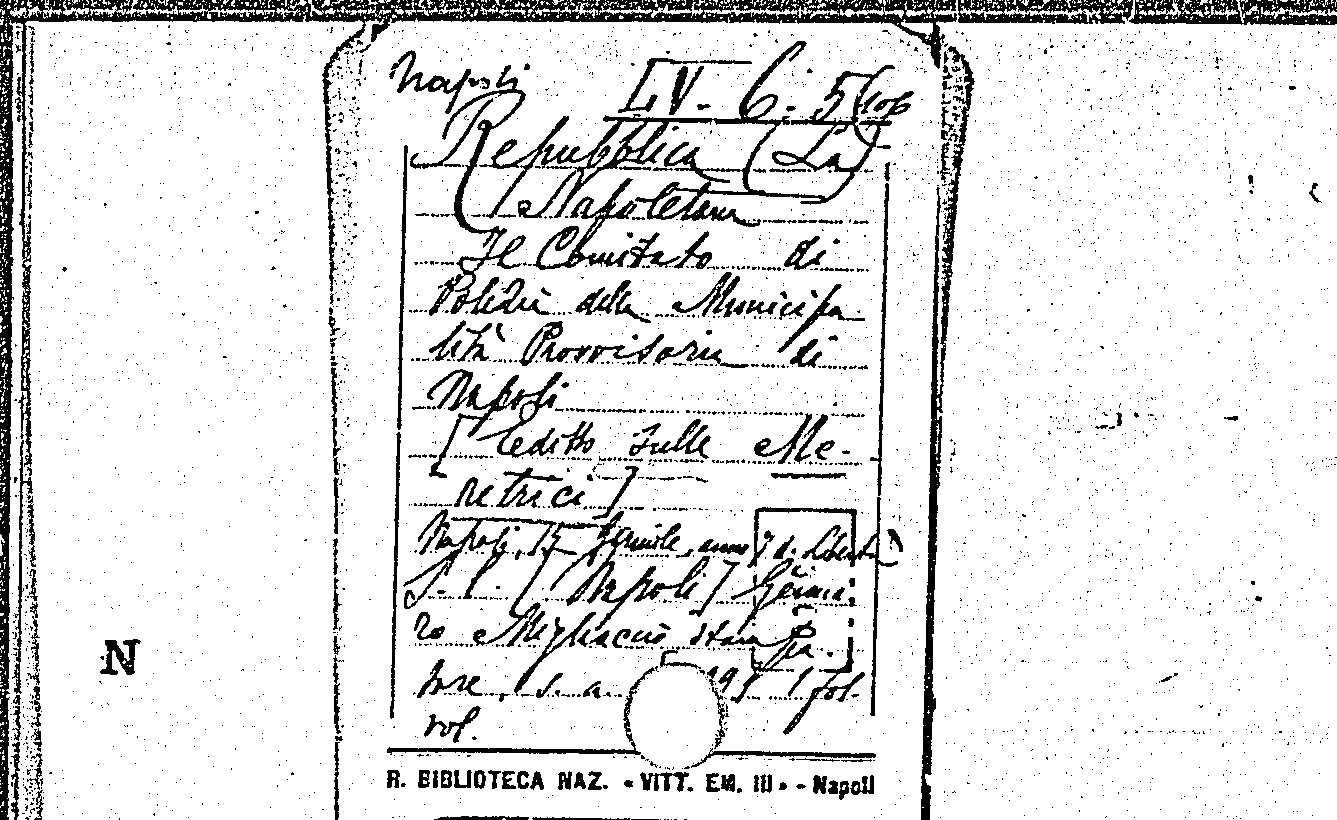 Napoli LV. 6. 5(106
Repubblica (La)
Napoletana
Il Comitato di
Polizia della Municipa
lità Provvisoria di
Napoli
[Editto sulle Me-
retrici]
Napoli, 15 Genile, anno 7 d. Libertà
S. l. [Napoli] Genna:
ro Migliaccio stam pa.
tore, s. a. 1 fol.
vol.
N
R. BIBLIOTECA NAZ. « VITT. EM. III » - Napoli